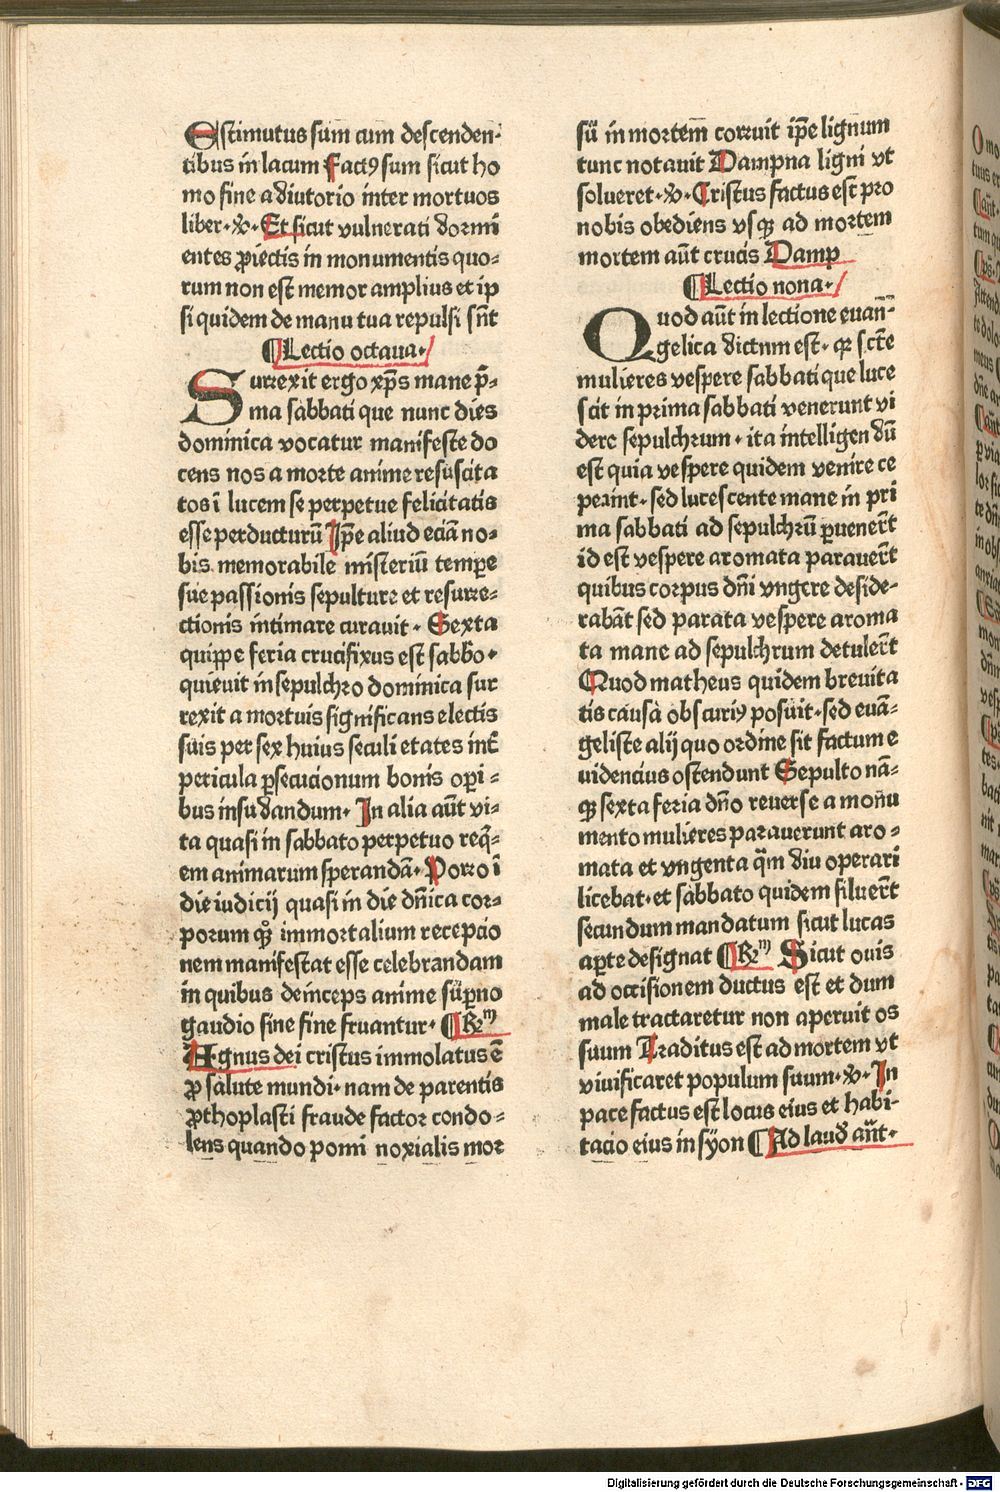 Estimutus sum cum descenden-
tibus in lacum Factꝰ sum sicut ho
mo sine adiutorio inter mortuos
liber·℣·Et sicut vulnerati dormi
entes ꝓiectis in monumentis quo-
rum non est memor amplius et ip
si quidem de manu tua repulsi sn̄t
¶Lectio octaua·
Surrexit ergo xp̄s mane p̄-
ma sabbati que nunc dies
dominica vocatur manifeste do
cens nos a morte anime resuscita
tos ī lucem se perpetue felicitatis
esse perducturū Ip̄e aliud eciā no-
bis memorabile misteriū tempꝛe
sue passionis sepulture et resurre-
ctionis intimare curauit· Sexta
quippe feria crucifixus est sabb̄o·
quieuit in sepulchro dominica sur
rexit a mortuis significans electis
suis per sex huius seculi etates int̄
pericula ꝑsecucionum bonis oꝑi-
bus insudandum· In alia aūt vi-
ta quasi in sabbato perpetuo req̄-
em animarum sperandā· Porro ī
die iudicij quasi in die dn̄ica cor-
porum qꝫ immortalium recepcio
nem manifestat esse celebrandam
in quibus deinceps anime suꝑno
gaudio sine fine fruantur· ¶Rm̄
Agnus dei cristus immolatus ē
ꝓ salute mundi· nam de parentis
ꝓthoplasti fraude factor condo-
lens quando pomi noxialis mor
sū in mortem corruit ip̄e lignum
tunc notauit Dampna ligni vt
solueret·℣·Cristus factus est pro
nobis obediens vsqꝫ ad mortem
mortem aūt crucis Damp
¶Lectio nona·
Quod aūt in lectione euan-
gelica dictum est· qꝛ sc̄te
mulieres vespere sabbati que luce
scit in prima sabbati venerunt vi
dere sepulchrum· ita intelligendū
est quia vespere quidem venire ce
perint· sed lucescente mane in pri
ma sabbati ad sepulchrū ꝑuener̄t
id est vespere aromata parauer̄t
quibus corpus dn̄i vngere deside-
rabāt sed parata vespere aroma
ta mane ad sepulchrum detuler̄t
Quod matheus quidem breuita
tis causa obscuriꝰ posuit· sed euā-
geliste alij quo ordine sit factum e
uidencius ostendunt Sepulto nā-
qꝫ sexta feria dn̄o reuerse a monu
mento mulieres parauerunt aro-
mata et vngenta q̄m diu operari
licebat· et sabbato quidem siluer̄t
secundum mandatum sicut lucas
aꝑte designat ¶Rm̄ Sicut ouis
ad occisionem ductus est et dum
male tractaretur non aperuit os
suum Traditus est ad mortem vt
viuificaret populum suum·℣·In
pace factus est locus eius et habi-
tacio eius in syon ¶Ad laud̄ an̄t·
Digitalisierung gefördert durch die Deutsche Forschungsgemeinschaft - DFG